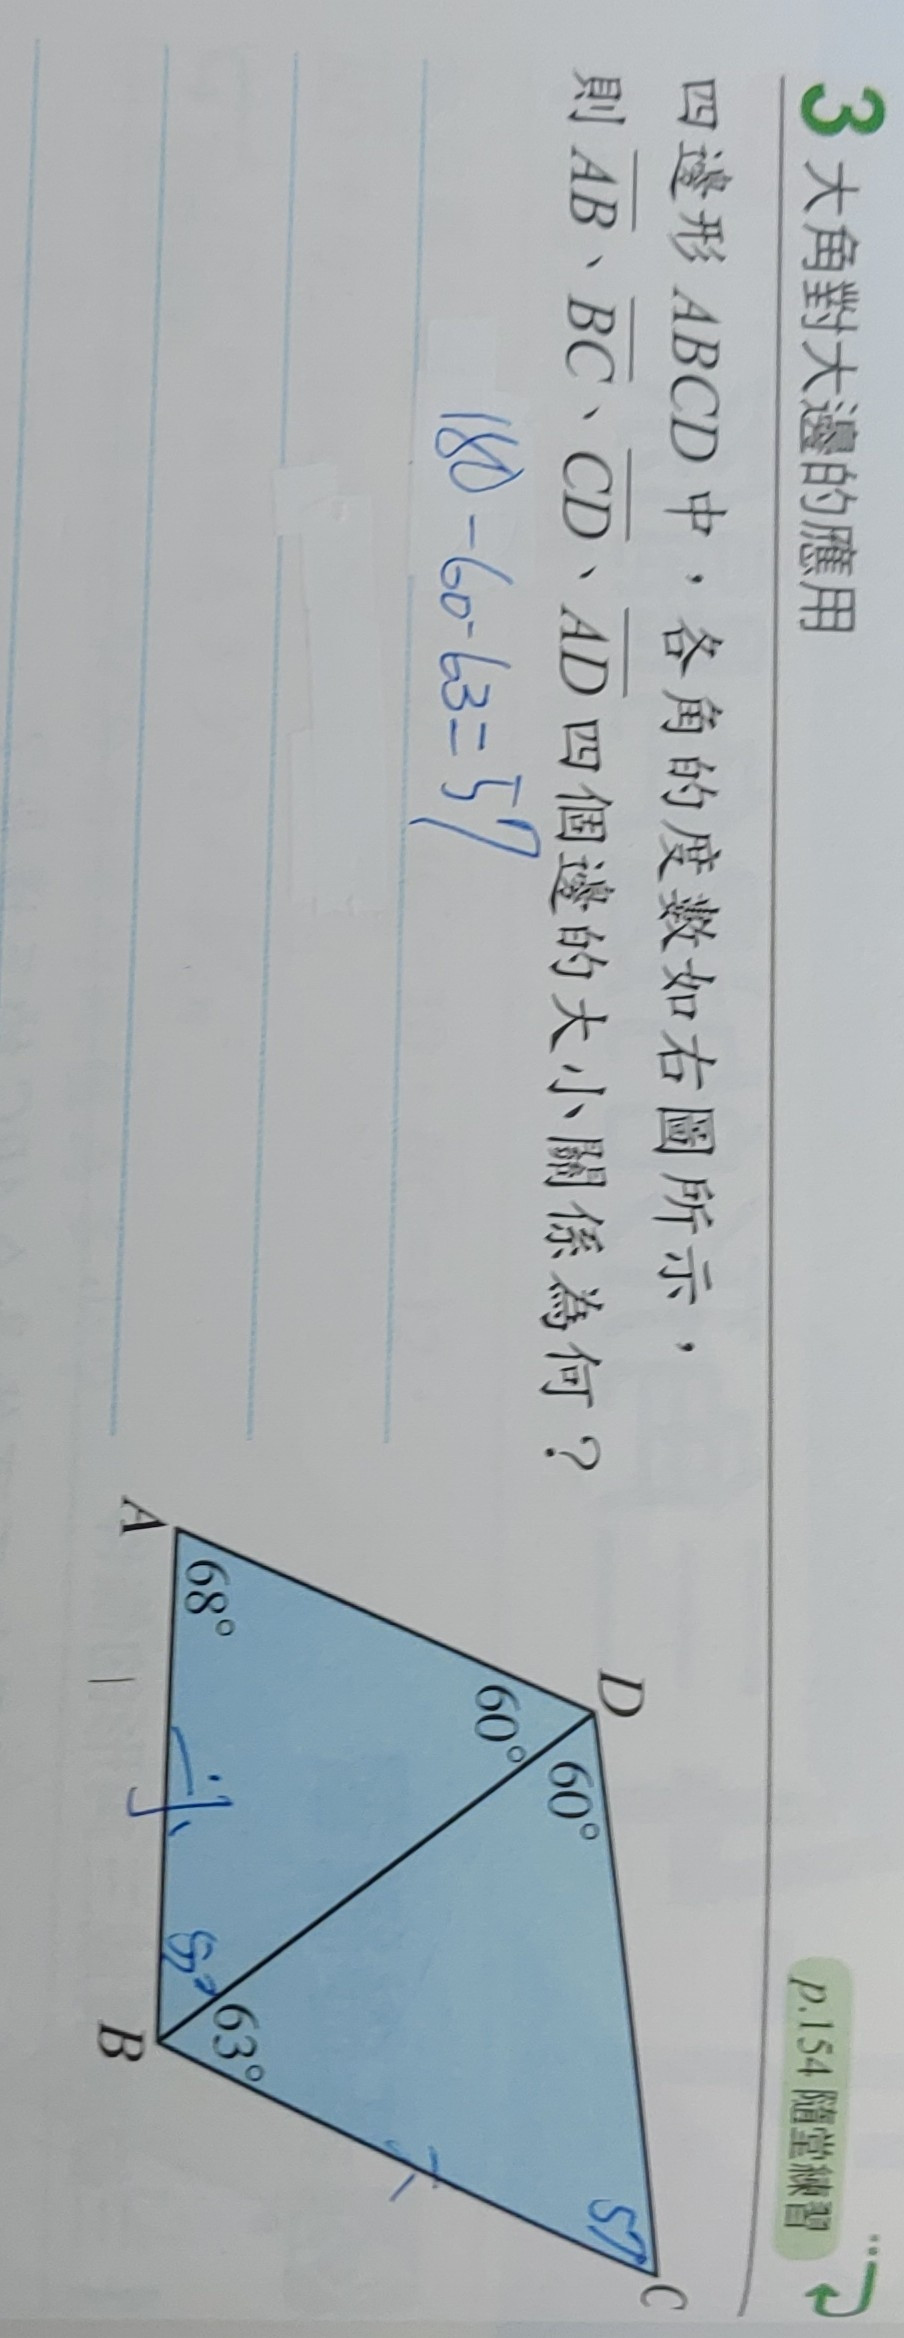 3 大角對大邊的應用
p.154 隨堂練習
四邊形 ABCD 中，各角的度數如右圖所示，
則 AB、BC、CD、AD 四個邊的大小關係為何？
180-60-63=57
D
60°
60°
C
57
A
68°
63°
52
B